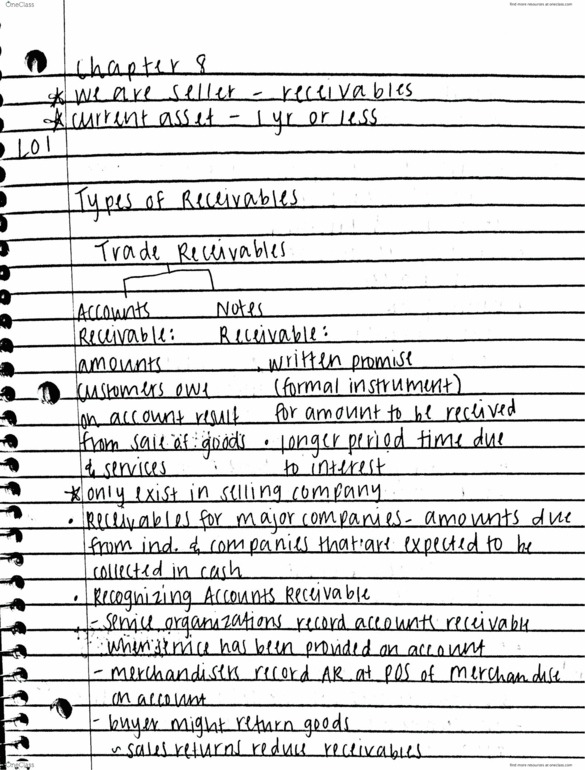 OneClass
find more resources at oneclass.com
Chapter 8
* we are seller - receivables
* current asset - 1 yr or less
LO1
Types of Receivables
Trade Receivables
Accounts Notes
Receivable: Receivable:
amounts . written promise
customers owe (formal instrument)
on account result for amount to be received
from sale of goods • longer period time due
& services to interest
* only exist in selling company
• Receivables for major companies - amounts due
from ind. & companies that are expected to be
collected in cash
• Recognizing Accounts Receivable
- service organizations record accounts receivable
when service has been provided on account
- merchandisers record AR at POS of merchandise
on account
- buyer might return goods
~ sales returns reduce receivables
OneClass
find more resources at oneclass.com